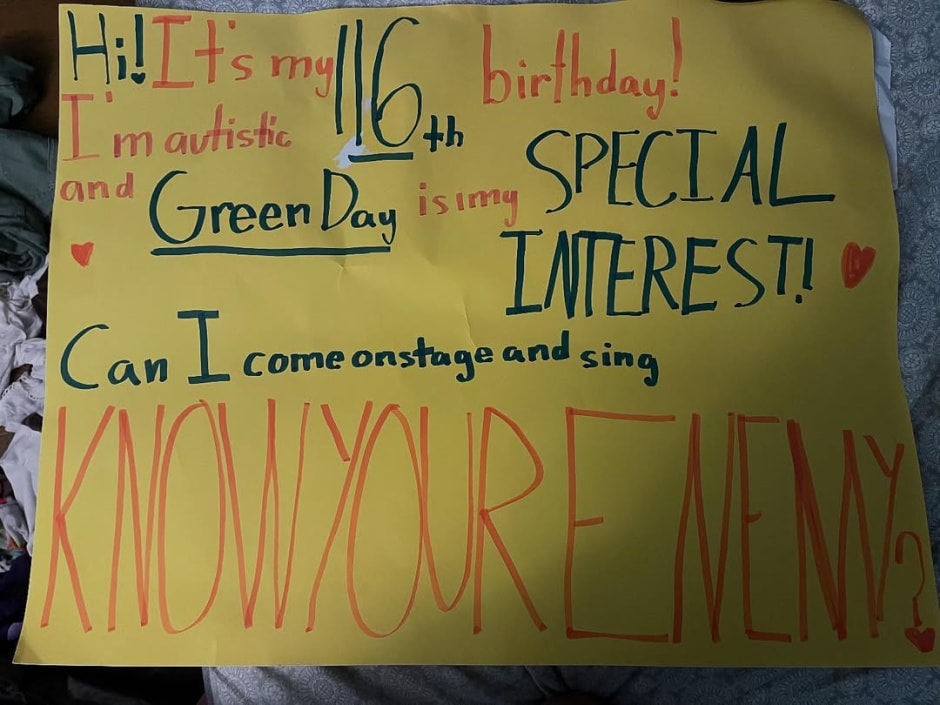 Hi! It's my 16th birthday!
I'm autistic
and Green Day is my SPECIAL
INTEREST!
Can I come onstage and sing
KNOW YOUR ENEMY?